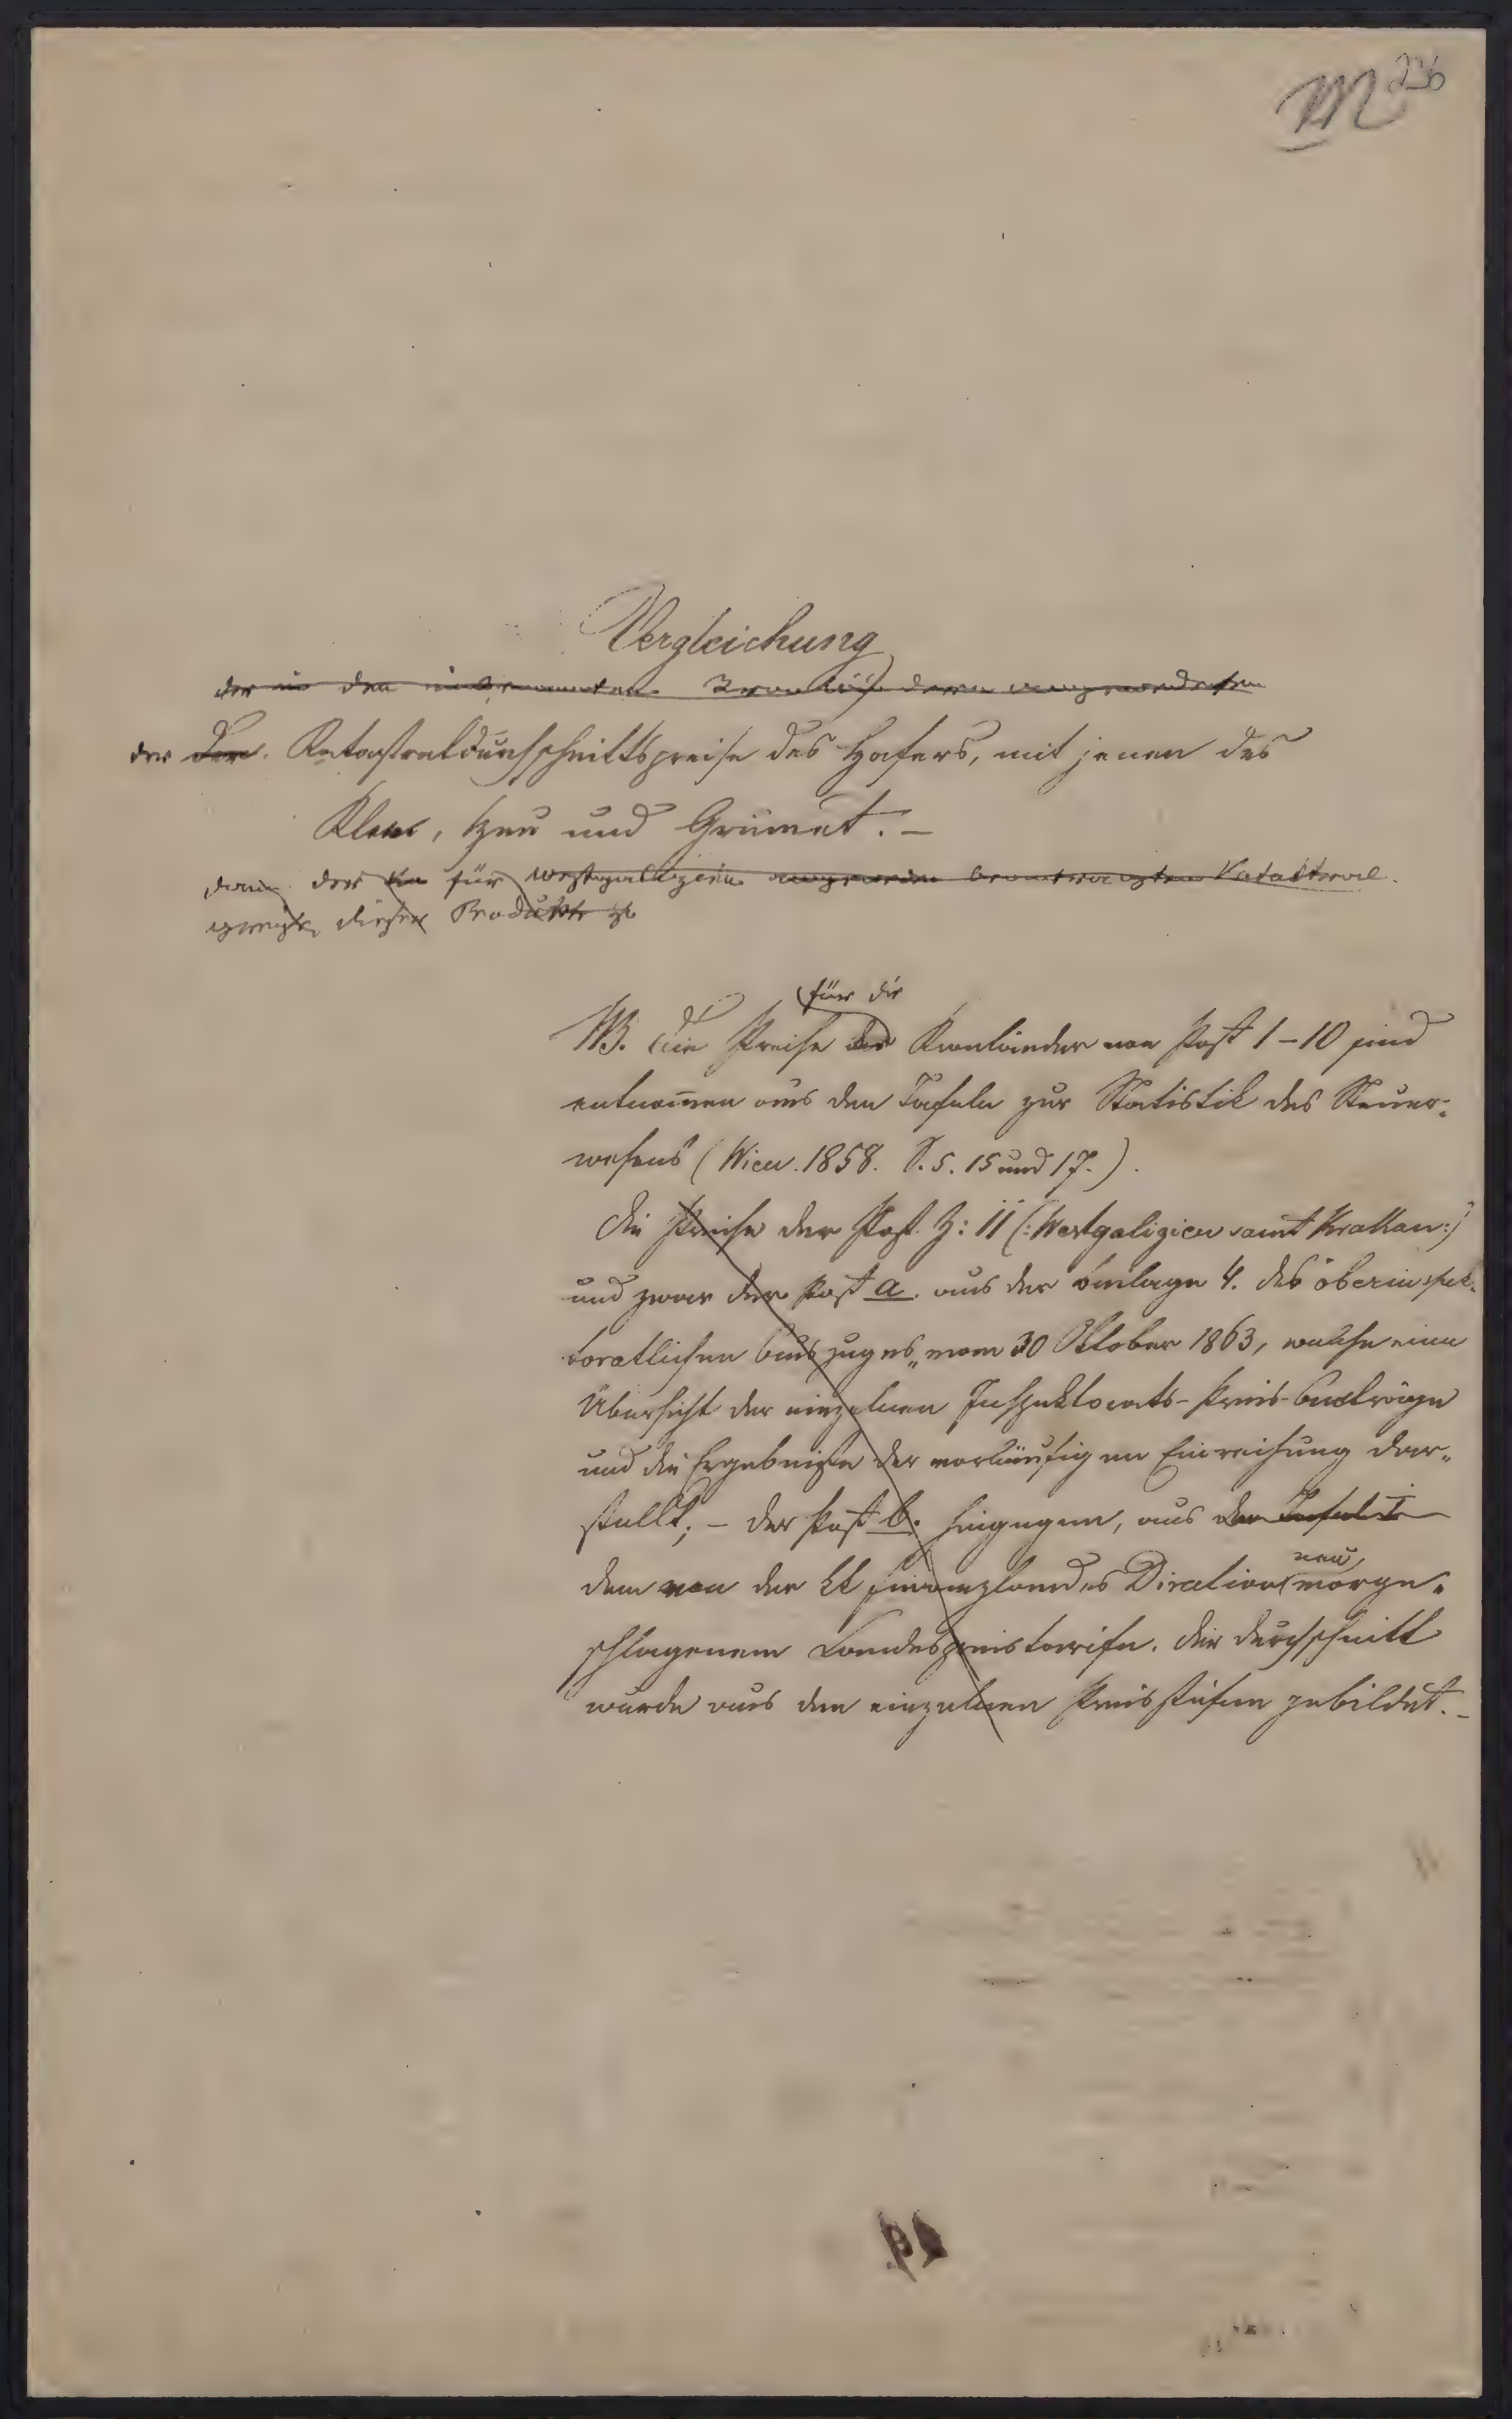 M 236
Vergleichung
der in den unbenannten Kronländern angewendeten
der Der. Katastraldurchschnittspreise des Hafers, mit jenen des
Klees, Heu und Grumet. –
dann der für Westgalizien beantragten Katastral
preise dieser Produkte
für die
NB. Die Preise der Kronländer von Post 1–10 sind
entnom̄en aus den Tafeln zur Statistik des Steuer-
wesens (Wien. 1858. S. 5. 15 und 17.).
Die Preise der Post Z: 11 (: Westgalizien samt Krakau :)
und zwar der Post a. aus der Einlage 4. des oberinspek-
toratlichen Auszuges vom 30 Oktober 1863, welche eine
Übersicht der einzelnen Inspektorats-Preis-Anträge
und die Ergebniße der vorläufigen Einreihung dar„
stellt; – der Post b. hingegen, aus der Tafel I
neu
dem von der kk Finanzlandes Direction vorge„
schlagenem Landespreistarife. Der Durchschnitt
wurde aus den einzelnen Preisstufen gebildet. –